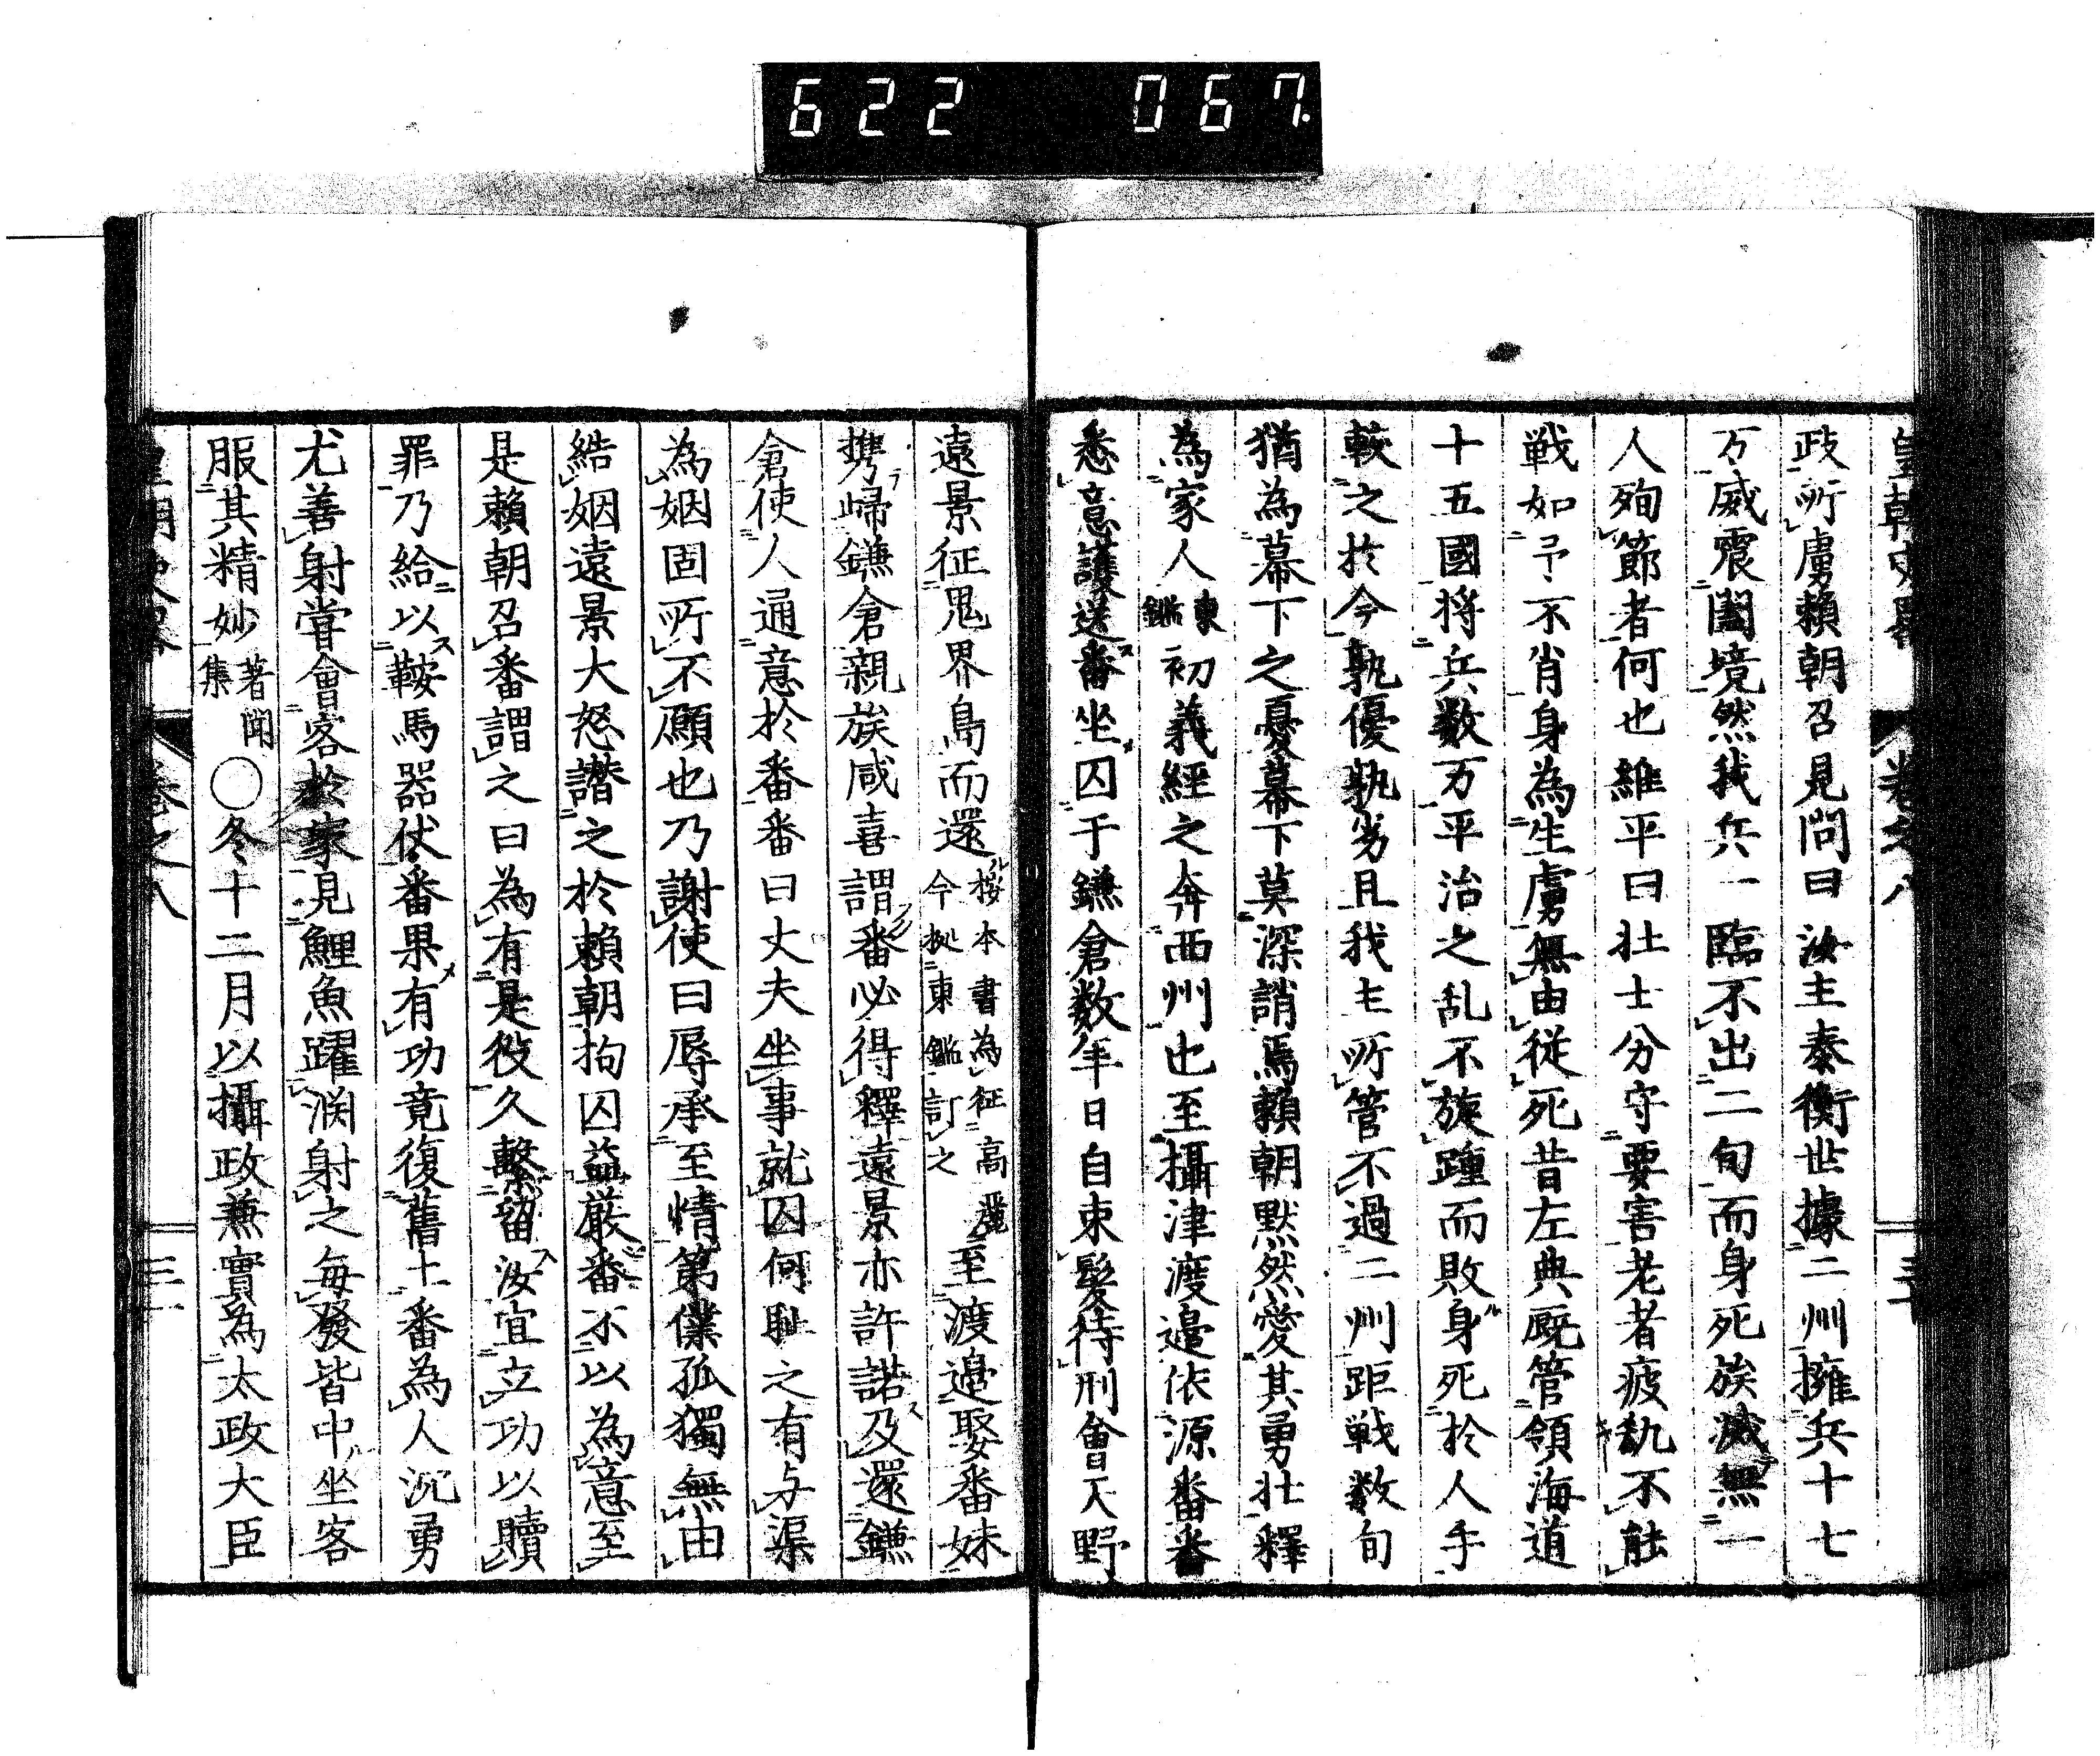 622 067
皇朝史畧 卷之八
政所虜賴朝召見問曰汝主泰衡世據二州擁兵十七
万威震闔境然我兵一臨不出二旬而身死族滅無一
人殉節者何也維平曰壯士分守要害老者疲執不能
戦如予不肖身為生虜無由従死昔左典厩管領海道
十五國将兵数万平治之乱不旋踵而敗身死於人手
較之於今孰優孰劣且我主所管不過二州距戦数旬
猶為幕下之憂幕下莫深誚焉賴朝默然愛其勇壮釋
為家人東鑑初義經之奔西州也至攝津渡邉依源番番
悉意護送番坐囚于鎌倉数年日自束髮待刑會天野
遠景征鬼界島而還按本書為征高麗今拠東鑑訂之至渡邉娶番妹
携歸鎌倉親族咸喜謂番必得釋遠景亦許諾及還鎌
倉使人通意於番番曰丈夫坐事就囚何耻之有与渠
為姻固所不願也乃謝使曰辱承至情第僕孤獨無由
結姻遠景大怒譖之於頼朝拘囚益厳番不以為意至
是賴朝召番謂之曰為有是役久繫留汝宜立功以贖
罪乃給以鞍馬器仗番果有功竟復舊土番為人沉勇
尤善射甞會客於家見鯉魚躍渕射之毎發皆中坐客
服其精妙著聞集○冬十二月以攝政兼實為太政大臣
皇朝史畧 卷之八 三十一